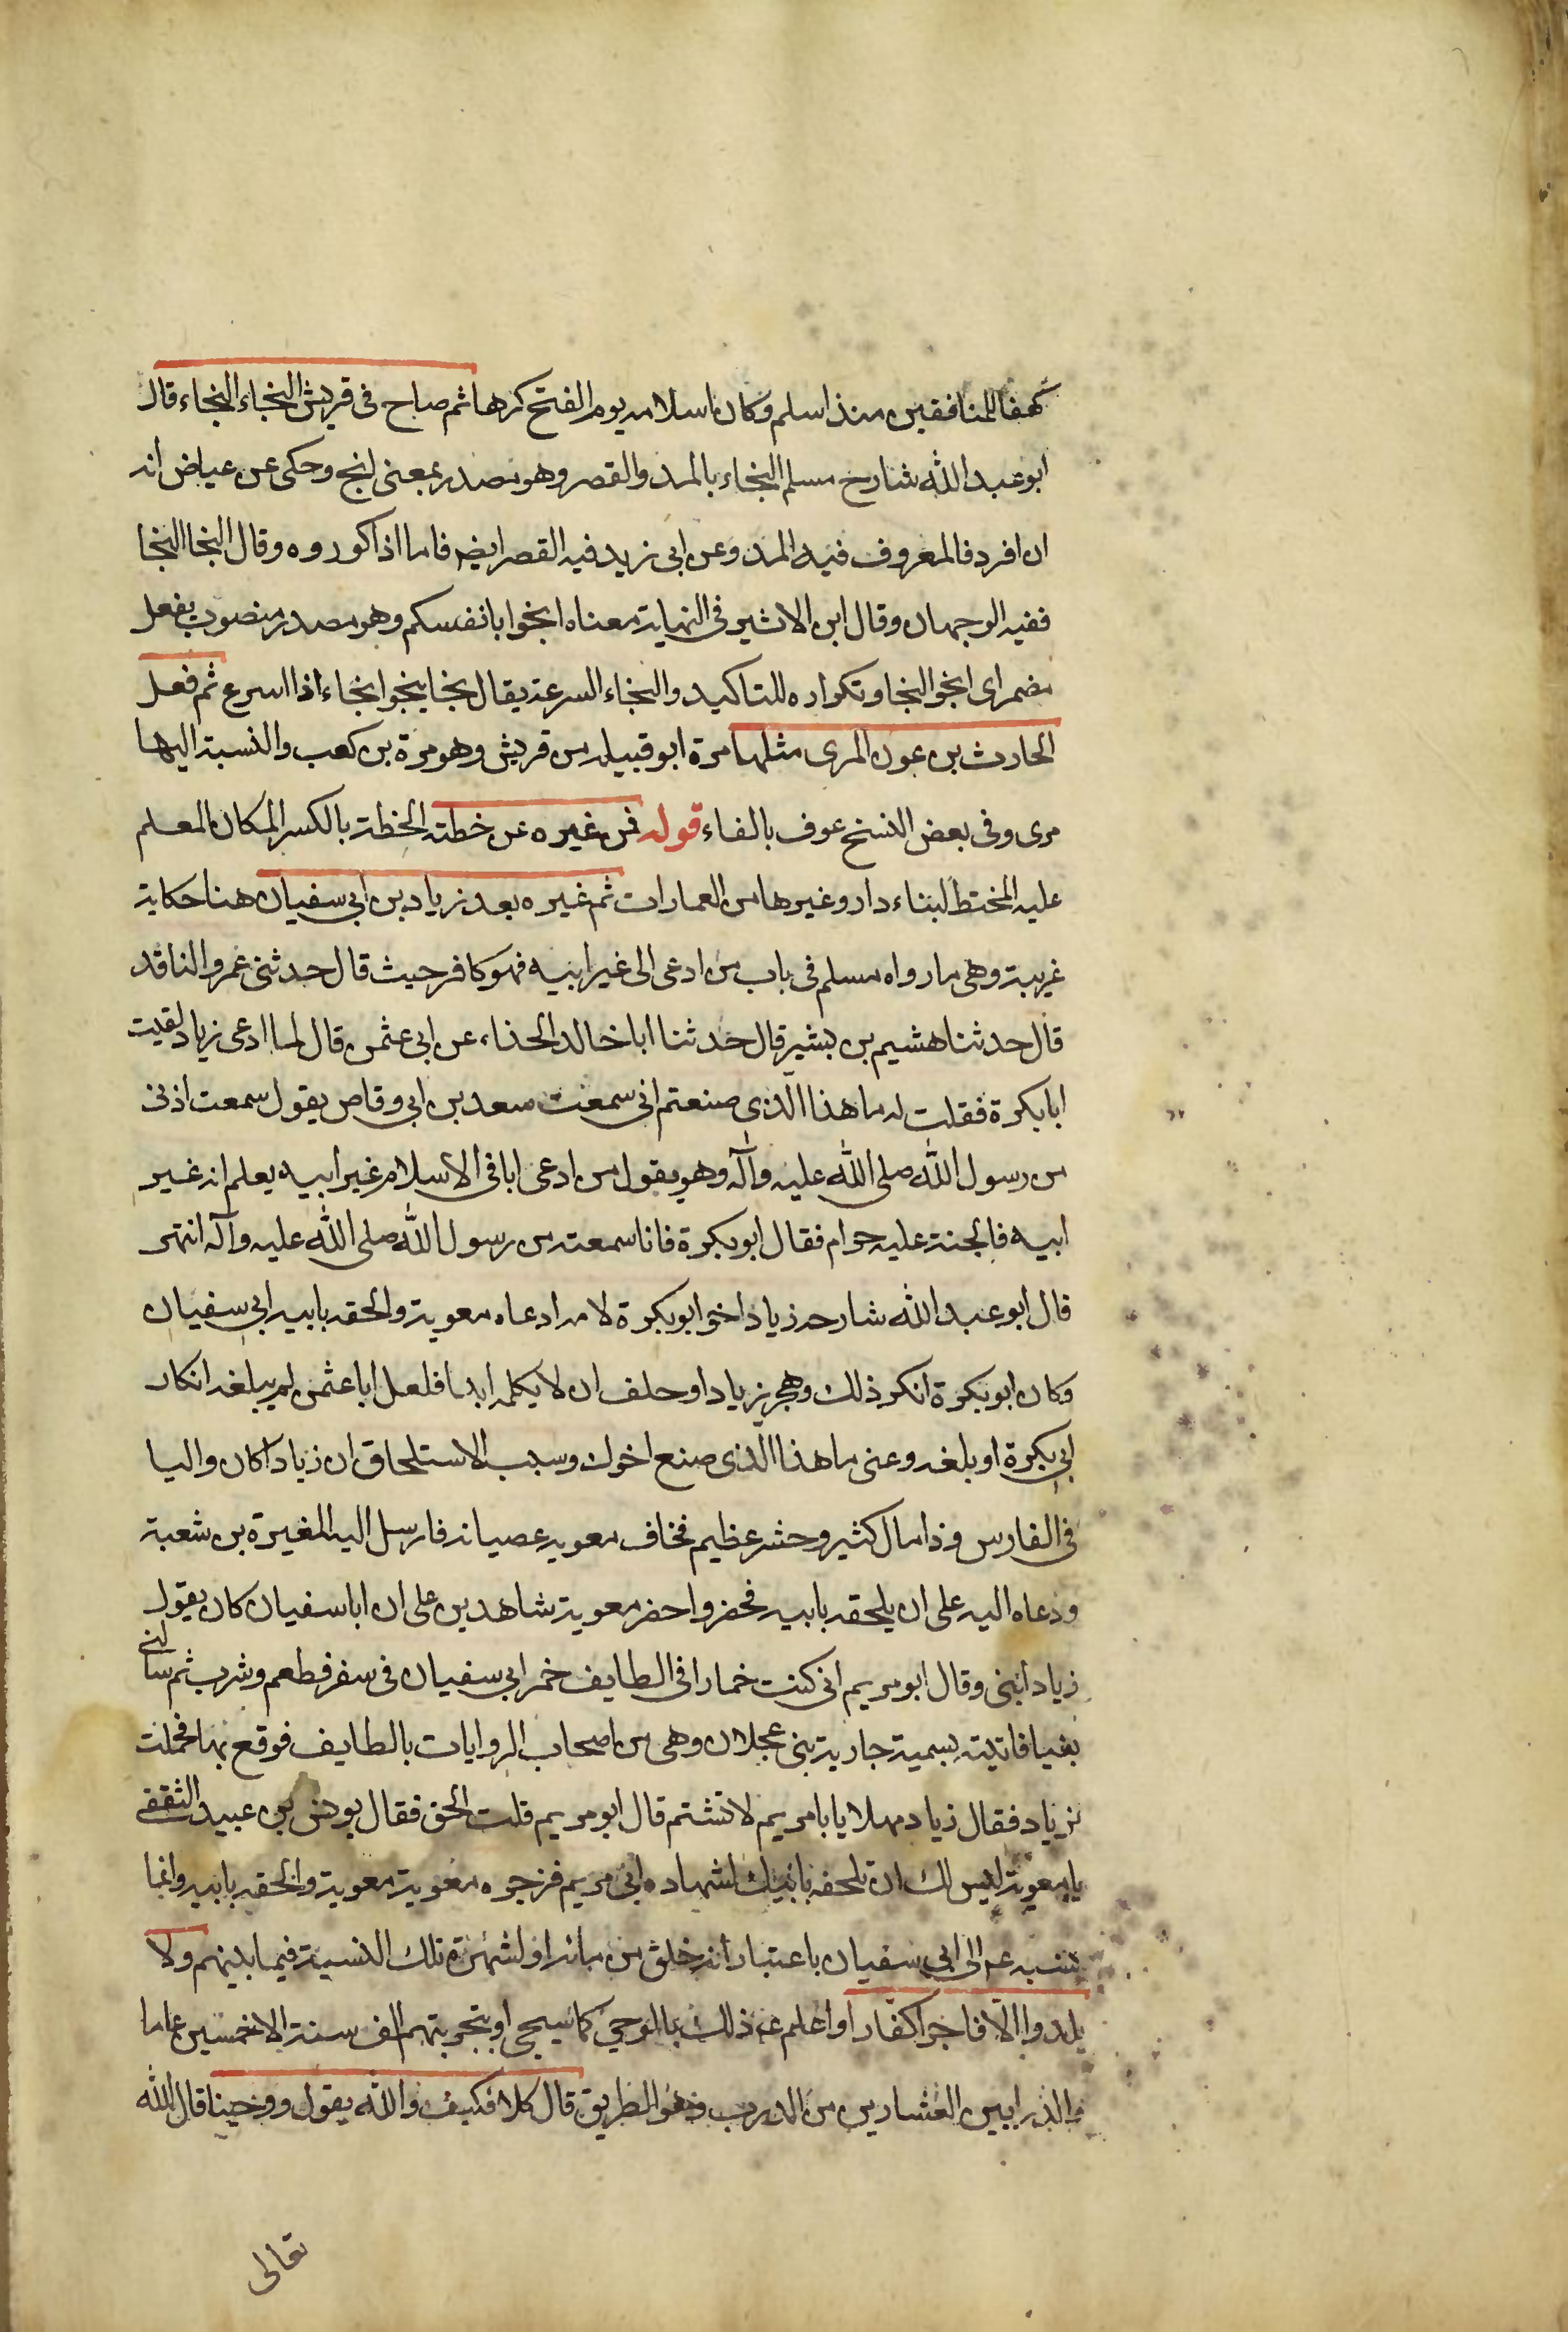 كهفا للمنافقين منذ اسلم وكان اسلامه يوم الفتح كرها ثم صاح فى قريش النجاء النجاء قال
ابو عبد الله شارح مسلم النجاء بالمد والقصر وهو مصدر بمعنى انج وحكى عن عياض انه
ان افرد فالمعروف فيه المد وعن ابى زيد فيه القصر ايضه فاما اذا كرروه وقال النجا النجا
ففيه الوجهان وقال ابن الاثير فى النهاية معناه انجوا بانفسكم وهو مصدر منصوب بفعل
مضمر اى انجوا النجا وتكراره للتاكيد والنجاء السرعة يقال نجا ينجوا نجاء اذا اسرع ثم فعل
الحارث بن عون المرى مثلها مرة ابو قبيله من قريش وهو مرة بن كعب والنسبة اليها
مرى وفى بعض النسخ عوف بالفاء قوله فمن غيره عن خطته الخطة بالكسر المكان المعلم
عليه المختط لبناء دار وغيرها من العمارات ثم غيره بعد زياد بن ابى سفيان هنا حكاية
غريبة وهى ما رواه مسلم فى باب من ادعى الى غير ابيه فهو كافر حيث قال حدثنى عمرو الناقد
قال حدثنا هشيم بن بشير قال حدثنا ابا خالد الحذاء عن ابى عثمن قال لما ادعى زياد لقيت
ابا بكرة فقلت له ما هذا الذى صنعتم انى سمعت سعد بن ابى وقاص يقول سمعت اذنى
من رسول الله صلى الله عليه وآله وهو يقول من ادعى ابا فى الاسلام غير ابيه يعلم انه غير
ابيه فالجنة عليه حرام فقال ابو بكرة فانا سمعته من رسول الله صلى الله عليه وآله انتهى
قال ابو عبد الله شارحه زياد اخو ابو بكرة لامه ادعاه معوية والحقه بابيه ابى سفيان
وكان ابو بكرة انكر ذلك وهجر زيادا وحلف ان لا يكلمه ابدا فلعل ابا عثمن لم يبلغه انكار
ابى بكرة او بلغه وعنى ما هذا الذى صنع اخوك وسبب الاستلحاق ان زيادا كان واليا
فى الفارس وذا مال كثير وحشر عظيم فخاف معويه عصيانه فارسل اليه المغيرة بن شعبة
ودعاه اليه على ان يلحقه بابيه فحضر واحضر معوية شاهدين على ان ابا سفيان كان يقول
زياد ابنى وقال ابو مريم انى كنت خمارا فى الطايف خمر ابى سفيان فى سفر فطعم وشرب ثم سالنى
بغيا فاتيته بسمية جارية بنى عجلان وهى من اصحاب الروايات بالطايف فوقع بها فحملت
بزياد فقال زياد مهلا يا با مريم لا تشتم قال ابو مريم قلت الحق فقال يونس بن عبيد الثقفى
يا معوية ليس لك ان تلحقه بابيك لشهاده ابى مريم فزجره معوية معوية والحقه بابيه وانما
نسبه عم الى ابى سفيان باعتبار انه خلق من مائه او لشهرة تلك النسبة فيما بينهم ولا
يلدوا الا فاجرا كفارا واعلم عه ذلك بالوحى كما سيجى او بتجربتهم الف سنة الا خمسين عاما
والدرابين العشارين من الدرب وهو الطريق قال كلا فكيف والله يقول ووحينا قال الله
تعالى